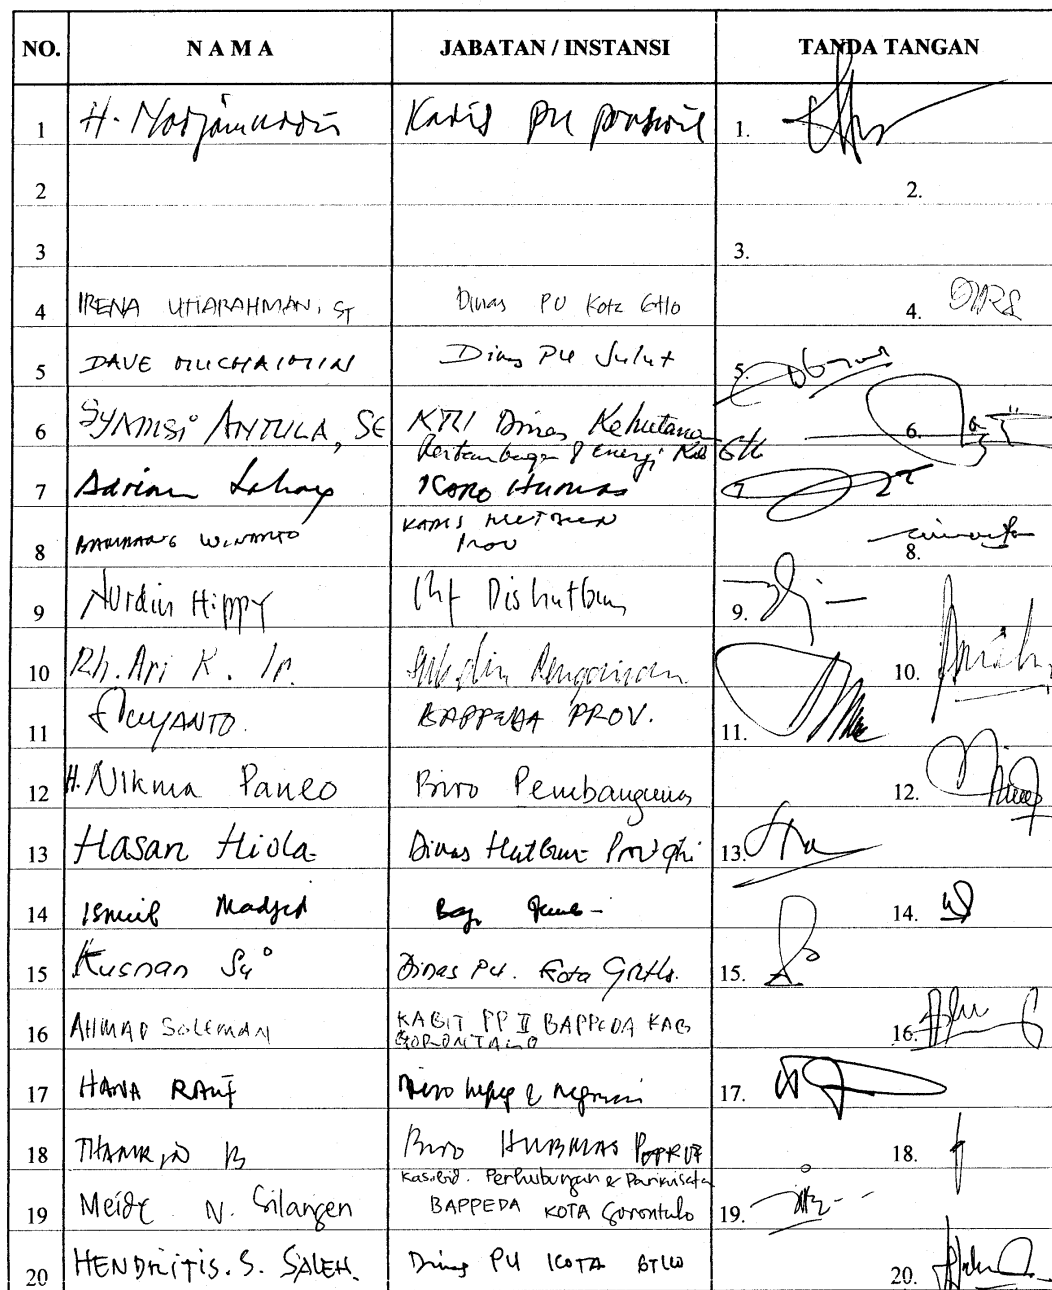 NO. N A M A JABATAN / INSTANSI TANDA TANGAN
1 H. Kadis PU 1.
2 2.
3 3.
4 IRENA UTIARAHMAN, ST Dinas PU Kota Gtlo 4.
5 DAVE MUCHAIMIN Dinas PU Sulut 5.
6 SYAMSI ANTULA, SE KTU Dinas Kehutanan 6.
Pertambangan & Energi Kab Gtl
7 Adrian Lahay Karo Humas 7.
8 BAMBANG WINARTO KADIS 8.
Prov
9 Nurdin Hippy Dishutbun 9.
10 Rh. Ari K. Ir. Subdin Pengairan 10.
11 BAPPEDA PROV. 11.
12 H. Nikma Paneo Biro Pembangunan 12.
13 Hasan Hiola Dinas Hutbun Prov 13.
14 Ismail Madjid Bag. 14.
15 Kusnan Dinas PU. Kota Grtlo. 15.
16 AHMAD SOLEMAN KABIT PP II BAPPEDA KAB 16.
GORONTALO
17 HANA RAUF Biro 17.
18 THAMRIN B Biro HUBMAS 18.
19 Meide N. Silangen Kasubid. Perhubungan & Pariwisata 19.
BAPPEDA KOTA Gorontalo
20 S. SALEH. Dinas PU KOTA GTLO 20.